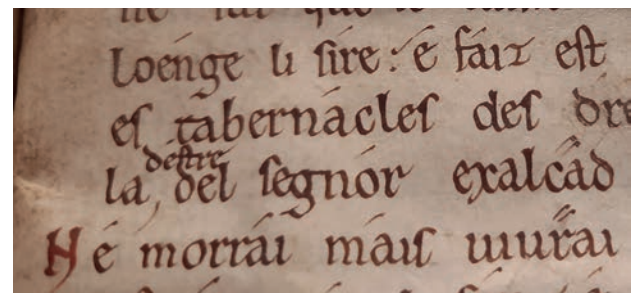 Loénge li ſire. é fáiz eſt
eſ tabernácleſ deſ dre
la deſtre del ſegnór exalcád
Né morrái máiſ uiurái